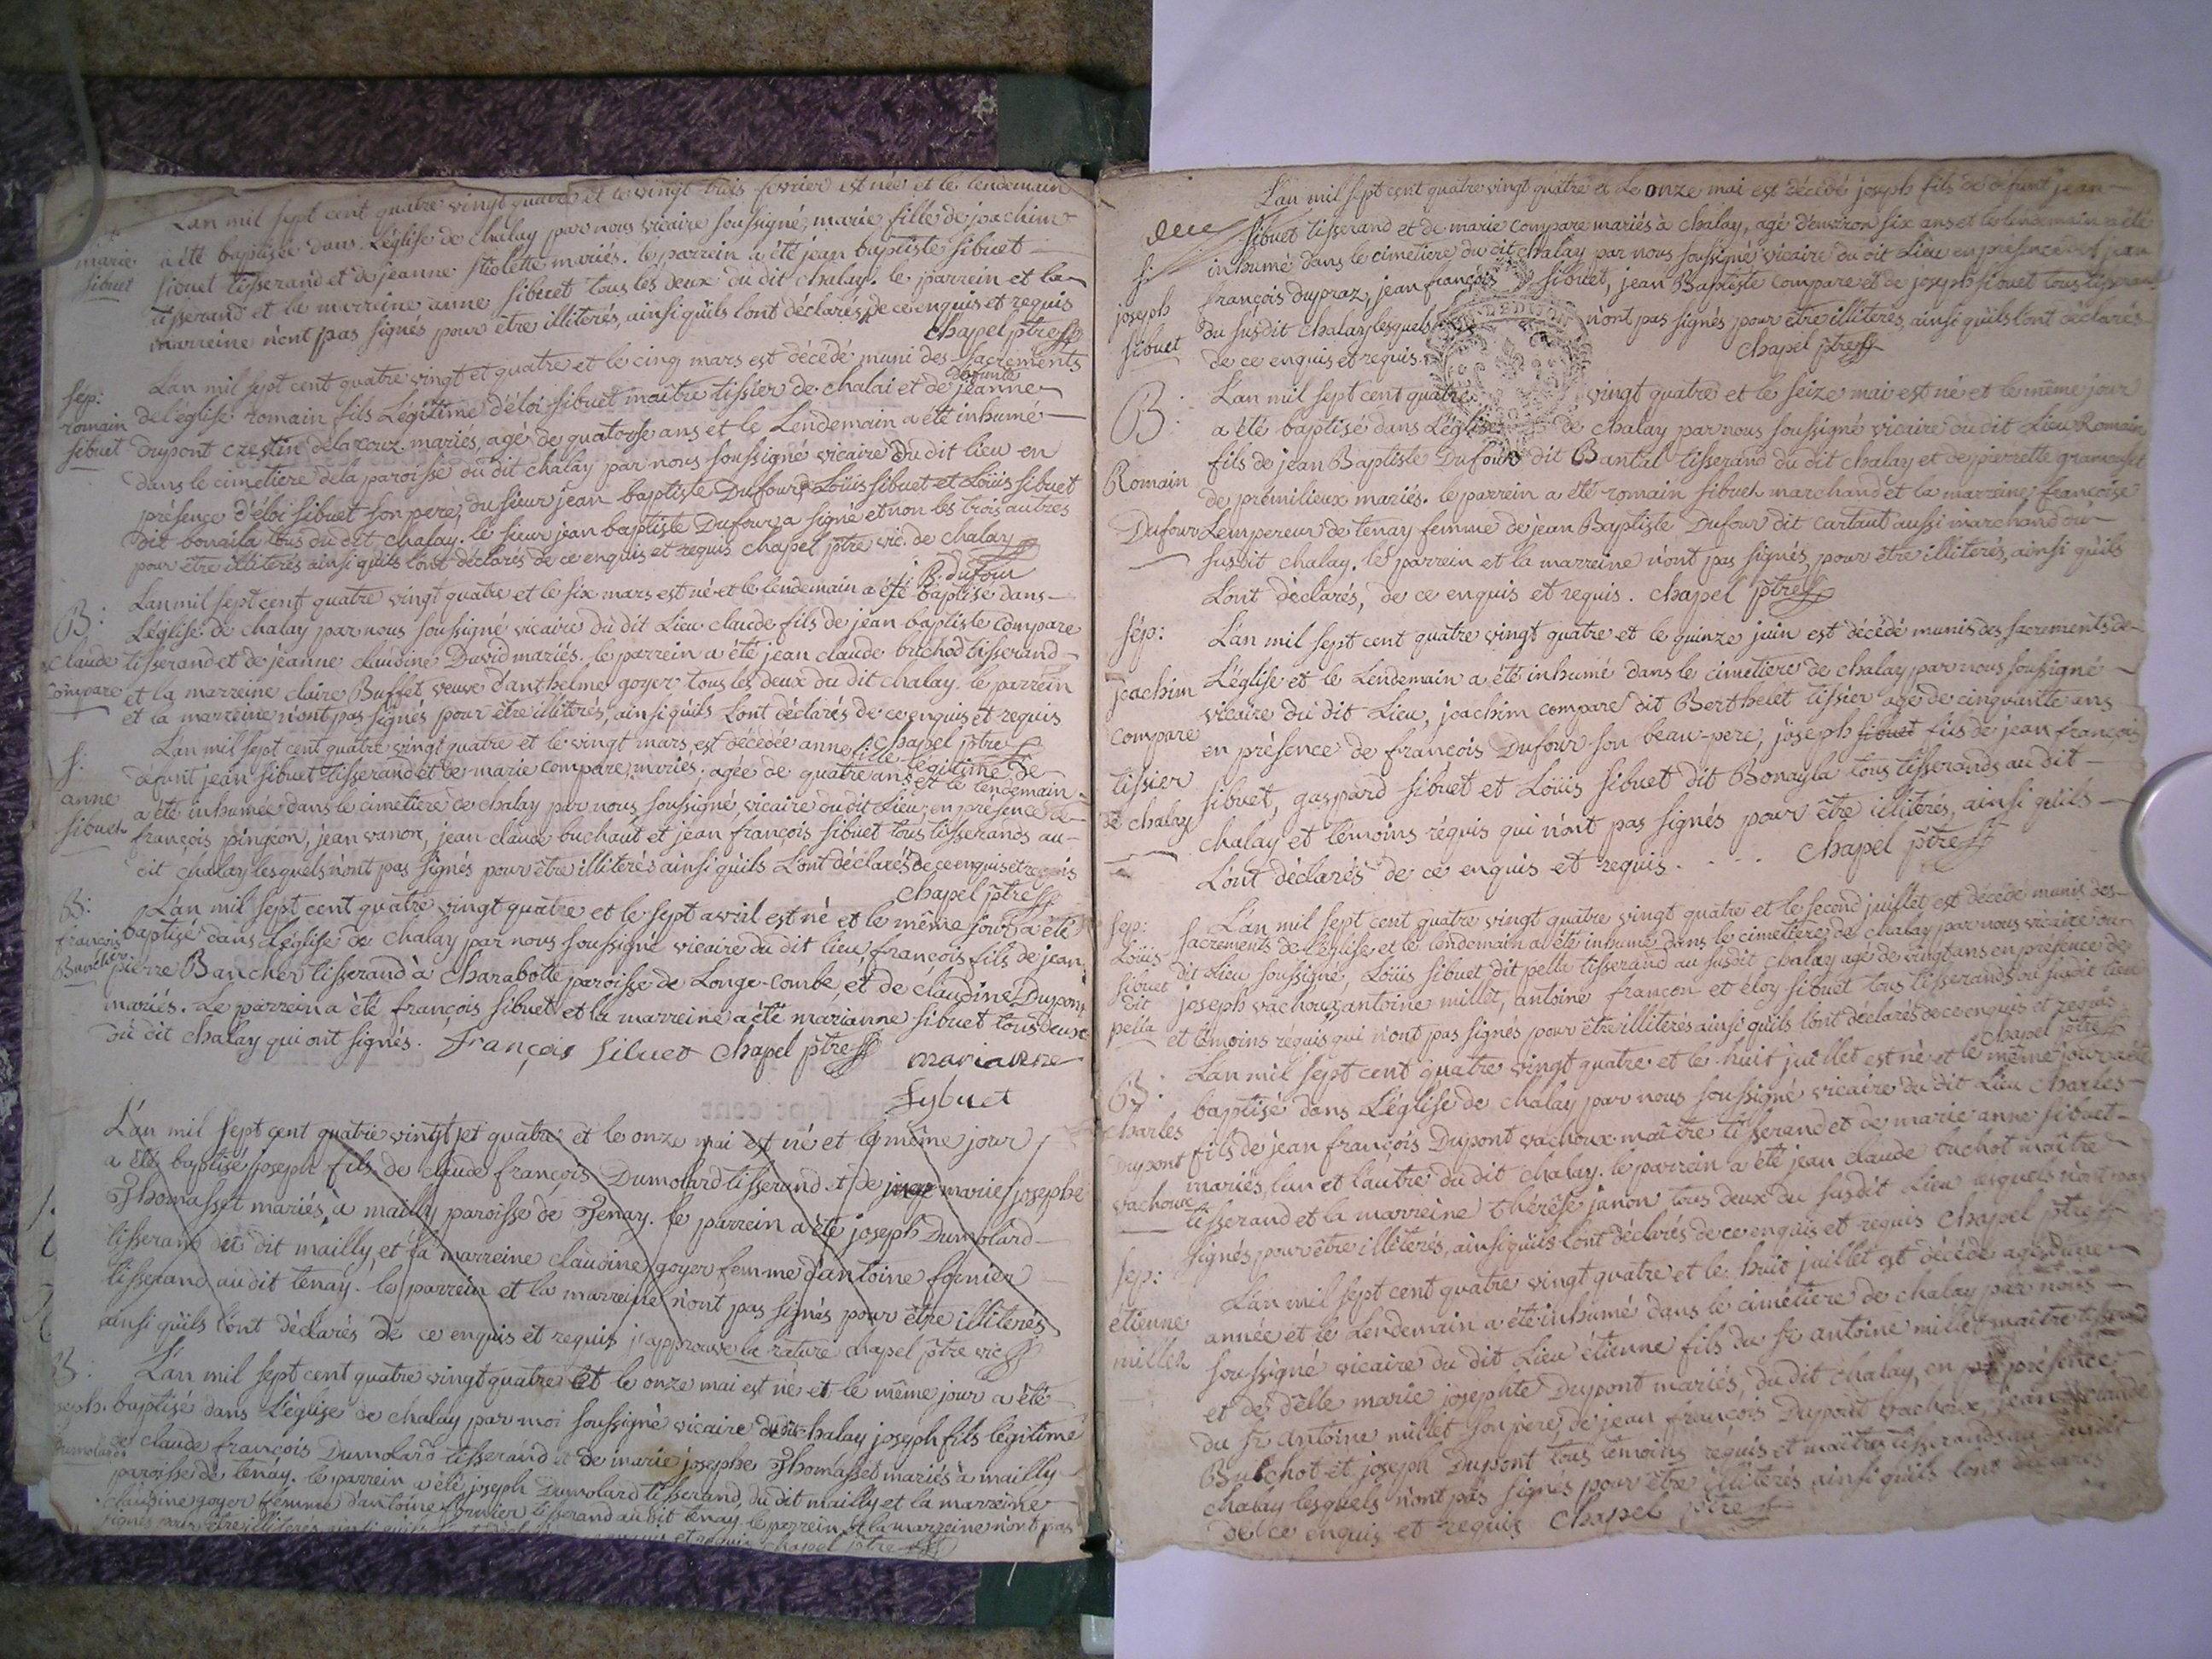 L'an mil sept cent quatre vingt quatre et le vingt trois fevrier est née et le lendemain
marie
a été baptisée dans l'église de chalay par nous vicaire soussigné, marie fille de joachim
sibuet
sibuet tisserand et de jeanne mariés. le parrein a été jean baptiste sibuet
tisserand et la marreine anne sibuet tous les deux du dit chalay. le parrein et la
marreine n'ont pas signés pour être illiterés, ainsi qu'ils l'ont déclarés, de ce enquis et requis
chapel ptre
L'an mil sept cent quatre vingt et quatre et le cinq mars est décédé muni des sacrements
sép:
romain
de l'église romain fils légitime d'éloi sibuet maître tissier de chalai et de defunte jeanne
sibuet
Dupont mariés, agé de quatorse ans et le Lendemain a été inhumé
dans le cimetiere de la paroisse du dit chalay par nous soussigné vicaire du dit lieu en
présence d'éloi sibuet son pere, du sieur jean baptiste Dufour, Loüis sibuet et Loüis sibuet
dit bonaila tous du dit chalay. le sieur jean baptiste Dufour a signé et non les trois autres
pour être illiterés ainsi qu'ils l'ont déclarés de ce enquis et requis chapel ptre vic. de chalay
j. B. dufour
L'an mil sept cent quatre vingt quatre et le six mars est né et le lendemain a été baptisé dans
B:
L'église de chalay par nous soussigné vicaire du dit Lieu claude fils de jean baptiste compare
claude
tisserand et de jeanne claudine David mariés. le parrein a été jean claude buchod tisserand
compare
et la marreine claire Buffet veuve d'anthelme goyer tous les deux du dit chalay. le parrein
et la marreine n'ont pas signés pour être illiterés, ainsi qu'ils l'ont déclarés de ce enquis et requis
chapel ptre
L'an mil sept cent quatre vingt quatre et le vingt mars, est décédée anne fille légitime de
s:
défunt jean sibuet tisserand et de marie compare, mariés. agée de quatre ans et le lendemain
anne
a été inhumée dans le cimetiere de chalay par nous soussigné, vicaire du dit Lieu, en présence de
sibuet
françois pingeon, jean vanon, jean claude buchaut et jean françois sibuet tous tisserands au
dit chalay lesquels n'ont pas signés pour être illiterés ainsi qu'ils l'ont déclarés de ce enquis et requis
chapel ptre
B:
L'an mil sept cent quatre vingt quatre et le sept avril est né et le même jour a été
françois
baptisé dans L'église de chalay par nous soussigné vicaire du dit lieu, françois fils de jean
Bancher
pierre Bancher tisserand à charabotte paroisse de Longe-combe, et de claudine Dupont
mariés. Le parrein a été françois sibuet et la marreine a été marianne sibuet tous deux
du dit chalay qui ont signés. François Sibuet chapel ptre marianne
Sybuet
L'an mil sept cent quatre vingt et quatre et le onze mai est né et le même jour
a été baptisé joseph fils de claude françois Dumolard tisserand et de marie josephe
Thomasset mariés à mailly paroisse de Tenay. le parrein a été joseph Dumolard
tisserand du dit mailly, et la marreine claudine goyer femme d'antoine fornier
tisserand au dit tenay. le parrein et la marreine n'ont pas signés pour être illiterés
ainsi qu'ils l'ont déclarés de ce enquis et requis j'approuve la rature chapel ptre vic
B:
L'an mil sept cent quatre vingt quatre et le onze mai est né et le même jour a été
joseph.
baptisé dans l'église de chalay par moi soussigné vicaire du dit chalay joseph fils légitime
Dumolard
de claude françois Dumolard tisserand et de marie josephe Thomasset mariés à mailly
paroisse de tenay. le parrein a été joseph Dumolard tisserand, du dit mailly et la marreine
claudine goyer femme d'antoine fornier tisserand au dit tenay le parrein et la marreine n'ont pas
signés pour être illiterés ainsi qu'ils l'ont enquis et requis chapel ptre
L'an mil sept cent quatre vingt quatre et le onze mai est décédé joseph fils de défunt jean
sibuet tisserand et de marie compare mariés à chalay, agé d'environ six ans et le lendemain a été
s:
inhumé dans le cimetiere du dit chalay par nous soussigné vicaire du dit Lieu en presence de jean
joseph
françois dupraz, jean françois sibuet, jean Baptiste compare et de joseph sibuet tous tisserands
sibuet
du susdit chalay lesquels n'ont pas signés pour être illiterés, ainsi qu'ils l'ont déclarés
de ce enquis et requis.
chapel ptre
B:
L'an mil sept cent quatre vingt quatre et le seize mai est né et le même jour
a été baptisé dans l'église de chalay par nous soussigné vicaire du dit Lieu Romain
Romain
fils de jean Baptiste Dufour dit Bantal tisserand du dit chalay et de pierrette
de prémilieux mariés. le parrein a été romain sibuet marchand et la marreine françoise
Dufour
Lempereur de tenay femme de jean Baptiste Dufour dit cartaut aussi marchand du
susdit chalay. le parrein et la marreine n'ont pas signés, pour être illiterés, ainsi qu'ils
l'ont déclarés, de ce enquis et requis. chapel ptre
sép:
L'an mil sept cent quatre vingt quatre et le quinze juin est décédé munis des sacrements de
joachim
L'église et le Lendemain a été inhumé dans le cimetiere de chalay par nous soussigné
compare
vicaire du dit Lieu, joachim compare dit Berthelet tissier agé de cinquante ans
tissier
en présence de françois Dufour son beau-pere, joseph sibuet fils de jean françois
de chalay
sibuet, gaspard sibuet et Loüis sibuet dit Bonayla tous tisserands au dit
chalay et témoins réquis qui n'ont pas signés pour être illiterés, ainsi qu'ils
l'ont déclarés de ce enquis et requis. . . . . chapel ptre
sep:
L'an mil sept cent quatre vingt quatre vingt quatre et le second juillet est décédé munis des
Loüis
sacrements de l'église et le lendemain a été inhumé dans le cimetiere de chalay par nous vicaire du
sibuet
dit Lieu soussigné, Loüis sibuet dit pella tisserand au susdit chalay agé de vingt ans en présence de
dit
joseph vachoux, antoine millet, antoine françon et éloy sibuet tous tisserands du susdit lieu
pella
et témoins réquis qui n'ont pas signés pour être illiterés ainsi qu'ils l'ont déclarés de ce enquis et requis
chapel ptre
B:
L'an mil sept cent quatre vingt quatre et le huit juillet est né et le même jour a été
charles
baptisé dans L'église de chalay par nous soussigné vicaire du dit Lieu charles
Dupont
fils de jean françois Dupont vachoux maître tisserand et de marie anne sibuet
vachoux
mariés, l'un et l'autre du dit chalay. le parrein a été jean claude buchot maître
tisserand et la marreine thérèse janon tous deux du susdit Lieu lesquels n'ont pas
signés pour être illiterés, ainsi qu'ils l'ont déclarés de ce enquis et requis chapel ptre
sep:
L'an mil sept cent quatre vingt quatre et le huit juillet est décédé agé d'une
étienne
année et le Lendemain a été inhumé dans le cimétiere de chalay par nous
millet
soussigné vicaire du dit Lieu étienne fils du sr antoine millet maître tisserand
et de d'elle marie josephte Dupont mariés, du dit chalay, en présence
du sr antoine millet son père, de jean françois Dupont vachoux, jean claude
Buchot et joseph Dupont tous témoins réquis et maîtres tisserands au susdit
chalay lesquels n'ont pas signés pour être illiterés ainsi qu'ils l'ont déclarés
de ce enquis et requis chapel ptre